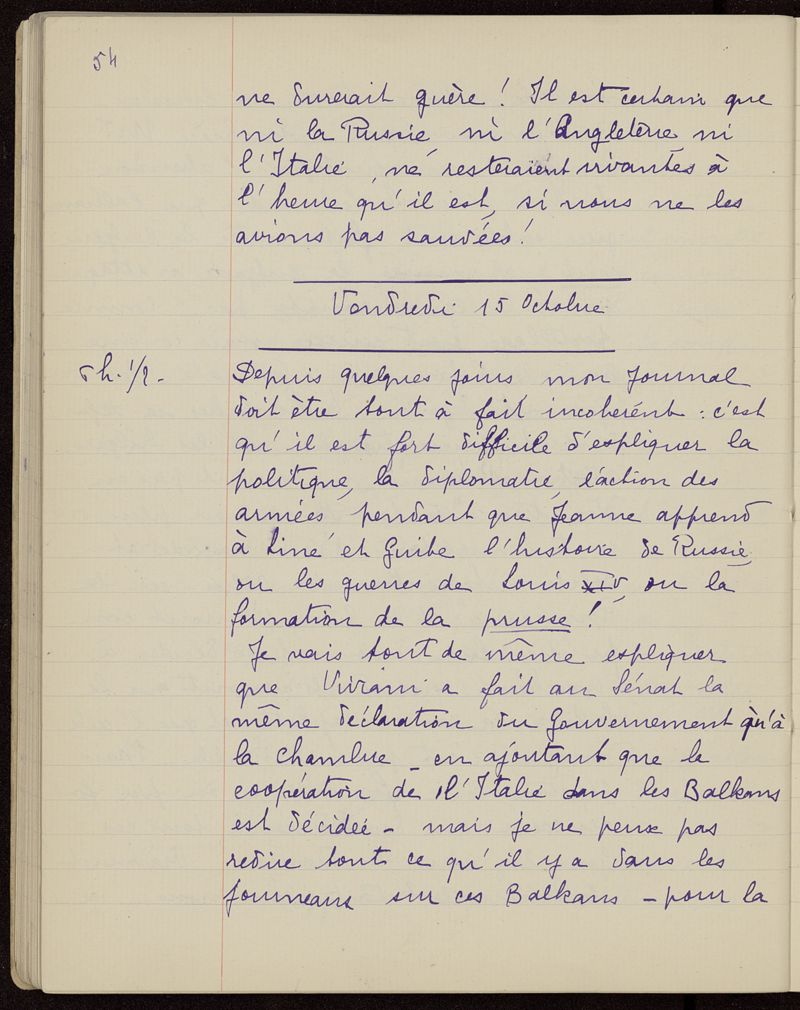 54
ne durerait guère ! Il est certain que
ni la Russie, ni l'Angleterre ni
l'Italie, ne resteraient vivantes à
l'heure qu'il est, si nous ne les
avions pas sauvées !
Vendredi 15 Octobre
5h. 1/2.
Depuis quelques jours mon Journal
doit être tout à fait incohérent : c'est
qu'il est fort difficile d'expliquer la
politique, la diplomatie, l'action des
armées pendant que Jeanne apprend
à Line et Guite l'histoire de Russie,
ou les guerres de Louis XIV, ou la
formation de la prusse !
Je vais tout de même expliquer
que Viviani a fait au Sénat la
même déclaration du Gouvernement qu'à
la chambre - en ajoutant que la
coopération de l'Italie dans les Balkans
est décidée - mais je ne peux pas
redire tout ce qu'il y a dans les
journeaux sur ces Balkans - pour la